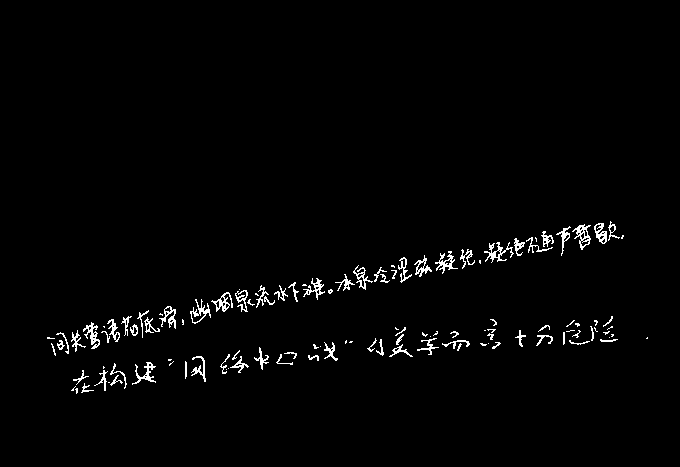 间关莺语花底滑，幽咽泉流水下滩。冰泉冷涩弦凝绝，凝绝不通声暂歇，
在构建“网络中心战”的美军而言十分危险．